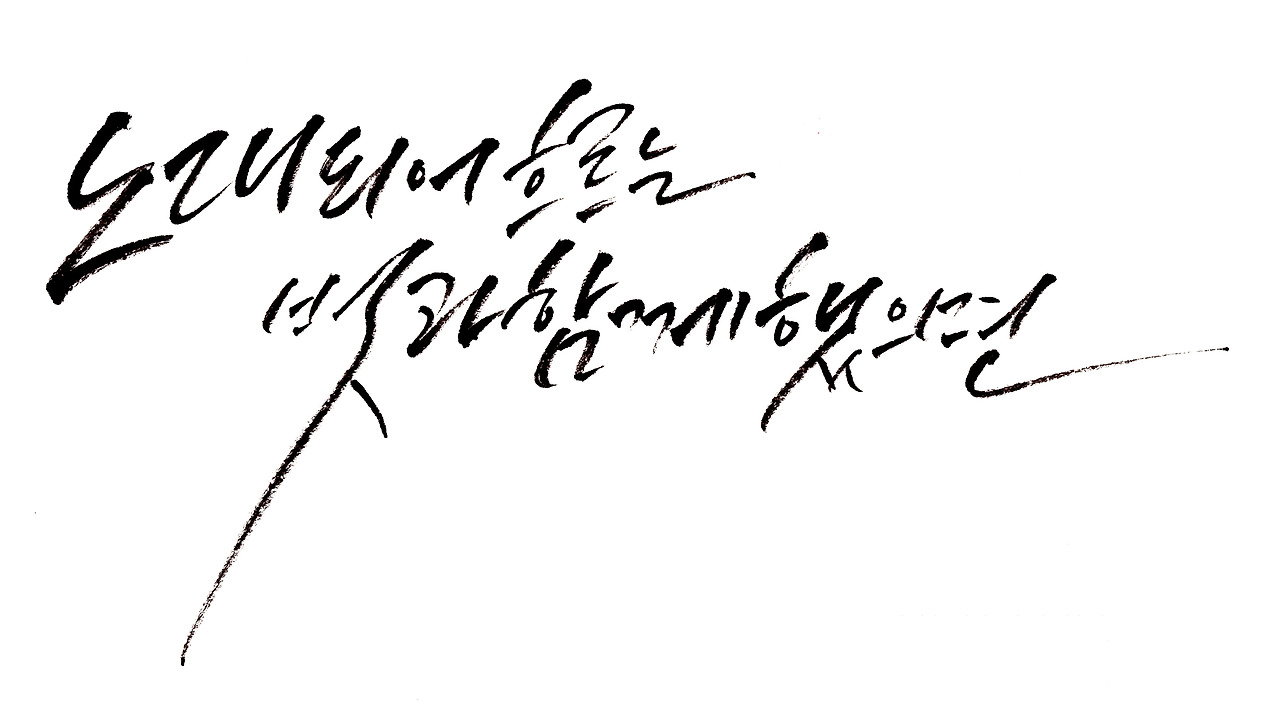 노래되어 흐르는
벗과 함께 했으면